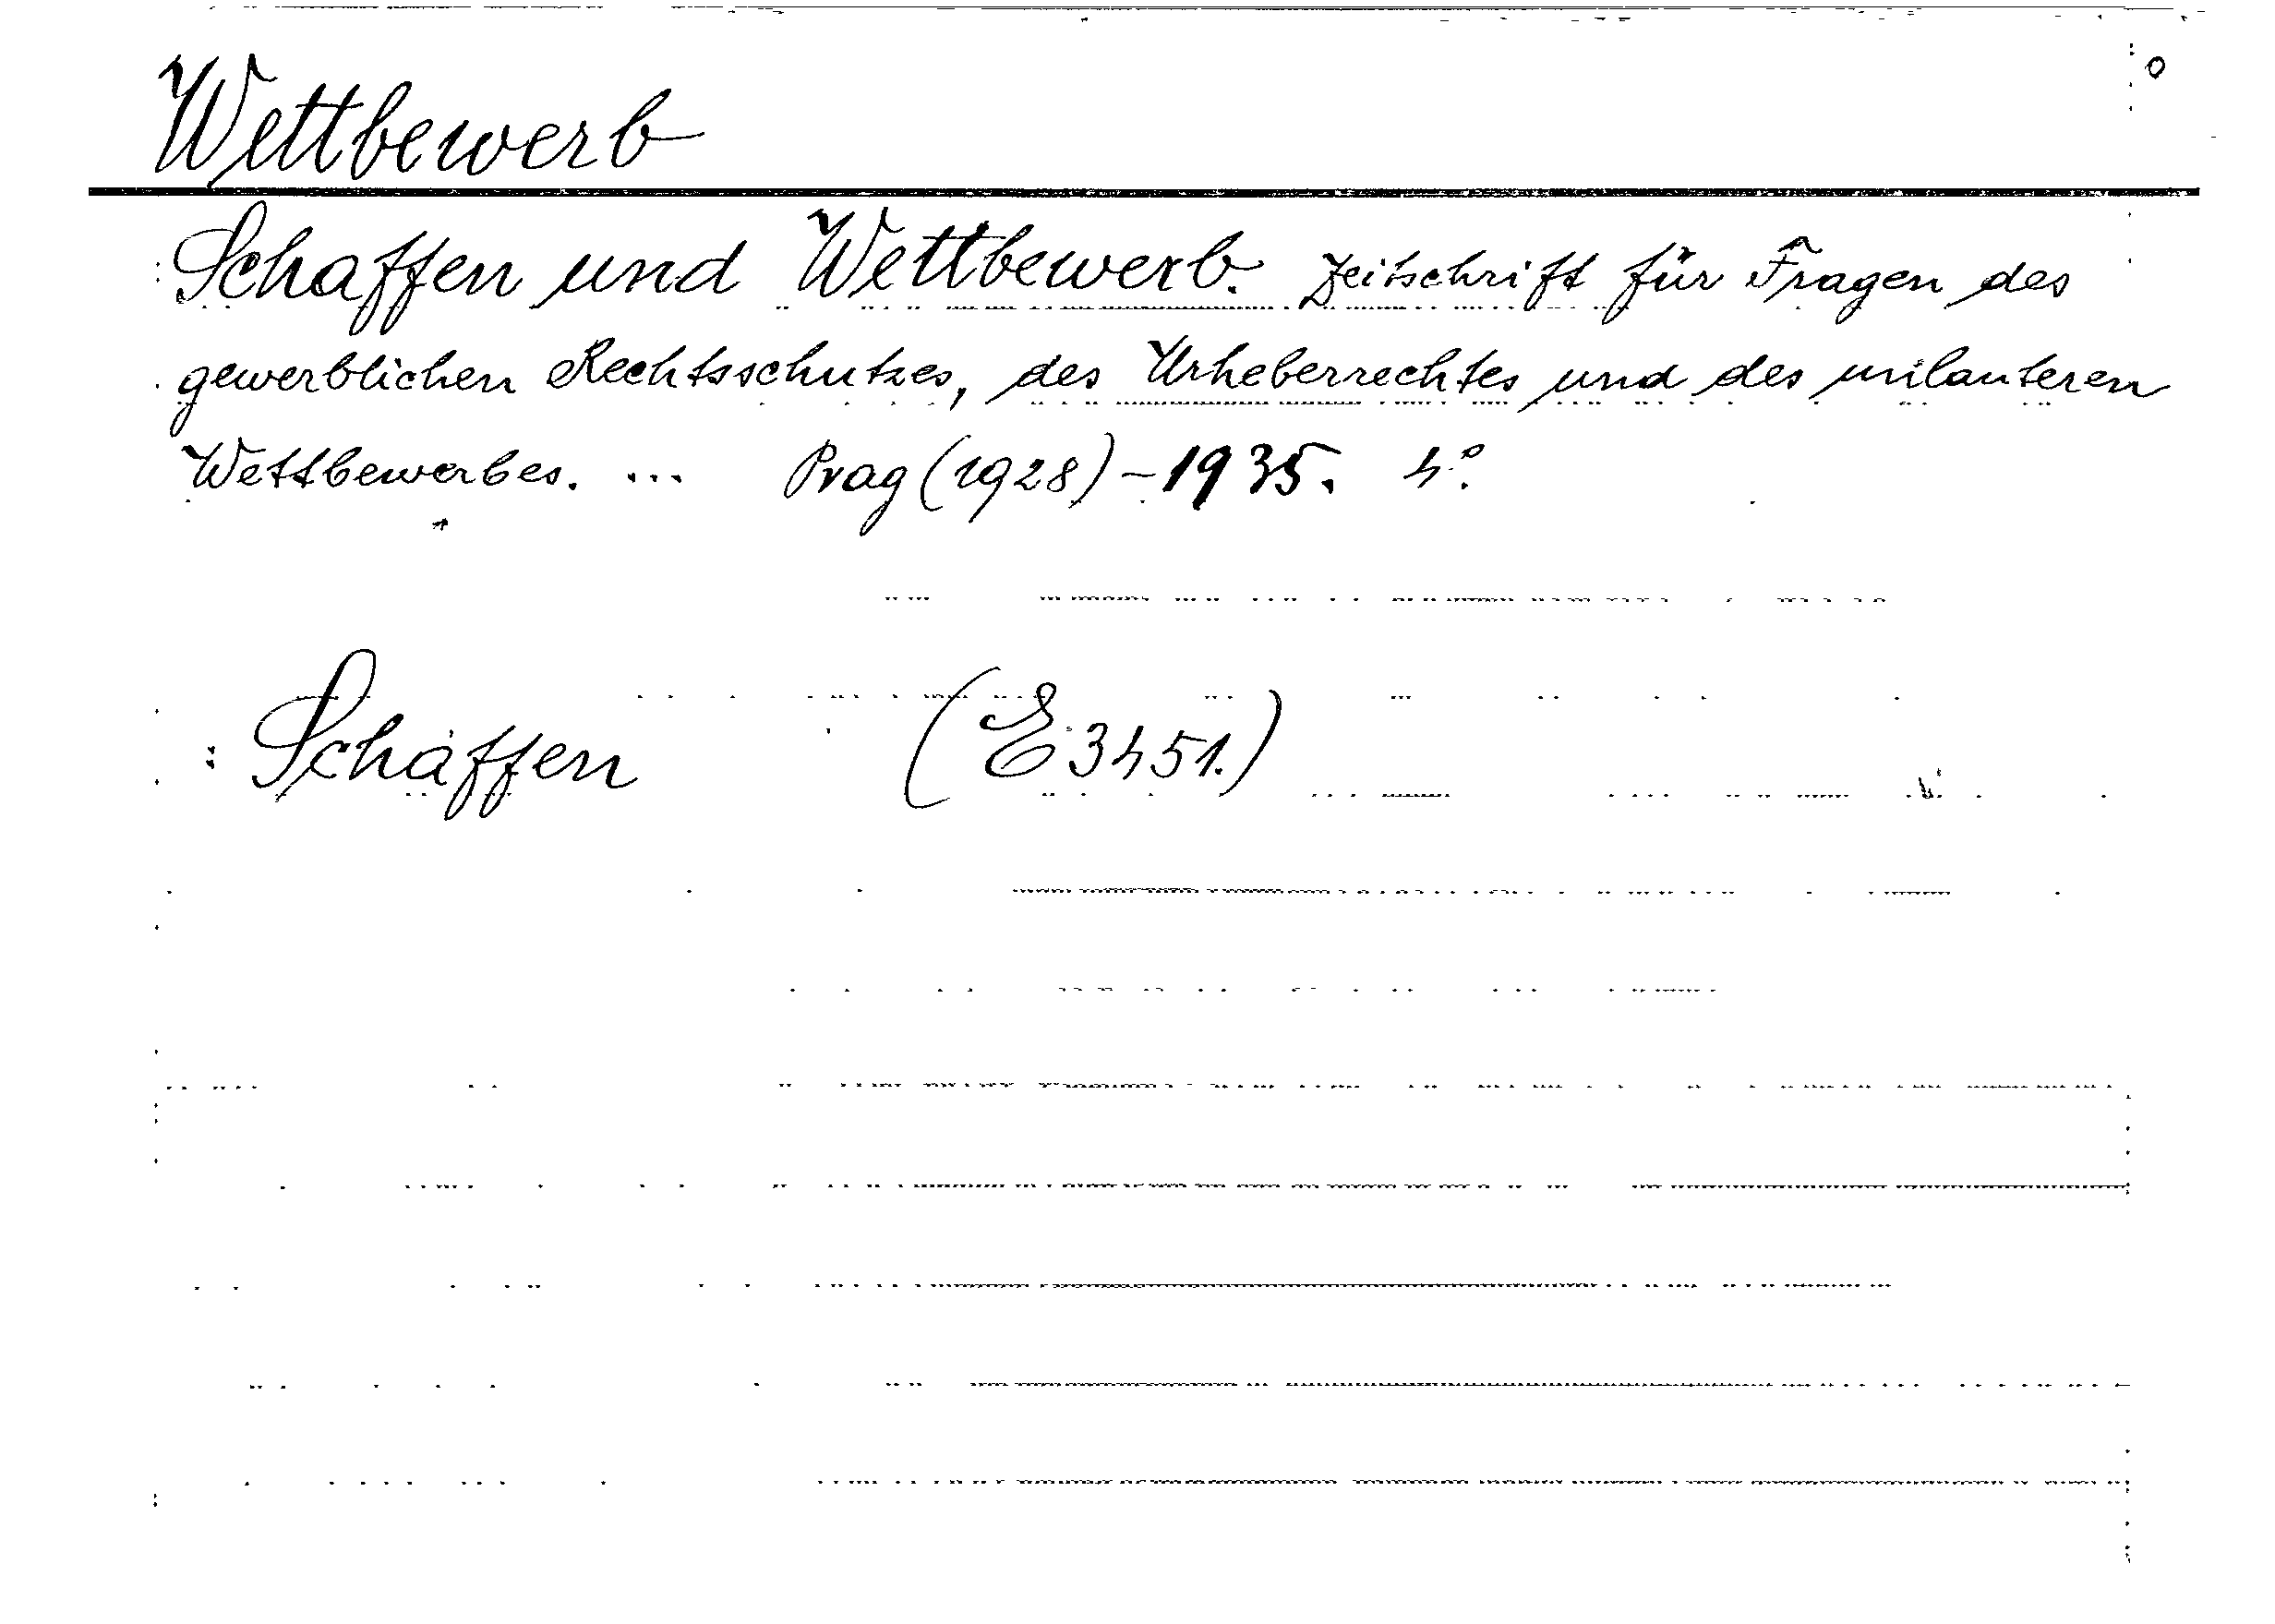 Wettbewerb
Schaffen und Wettbewerb. Zeitschrift für Fragen des
gewerblichen Rechtsschutzes, des Urheberrechtes und des unlauteren
Wettbewerbes. ... Prag (1928)-1935. 4°.
Schaffen (E 3451.)